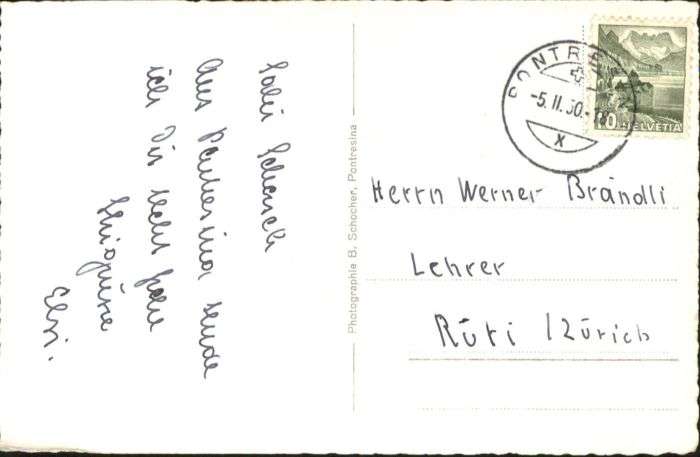 Salü Schatzli
Aus Pontresina sende
ich Dir recht frohe
Skigrüsse
Elsi.
Photographie B. Schocher, Pontresina
PONTRESINA
-5.II.50.-
X
10 HELVETIA
Herrn Werner Brändli
Lehrer
Rüti / Zürich